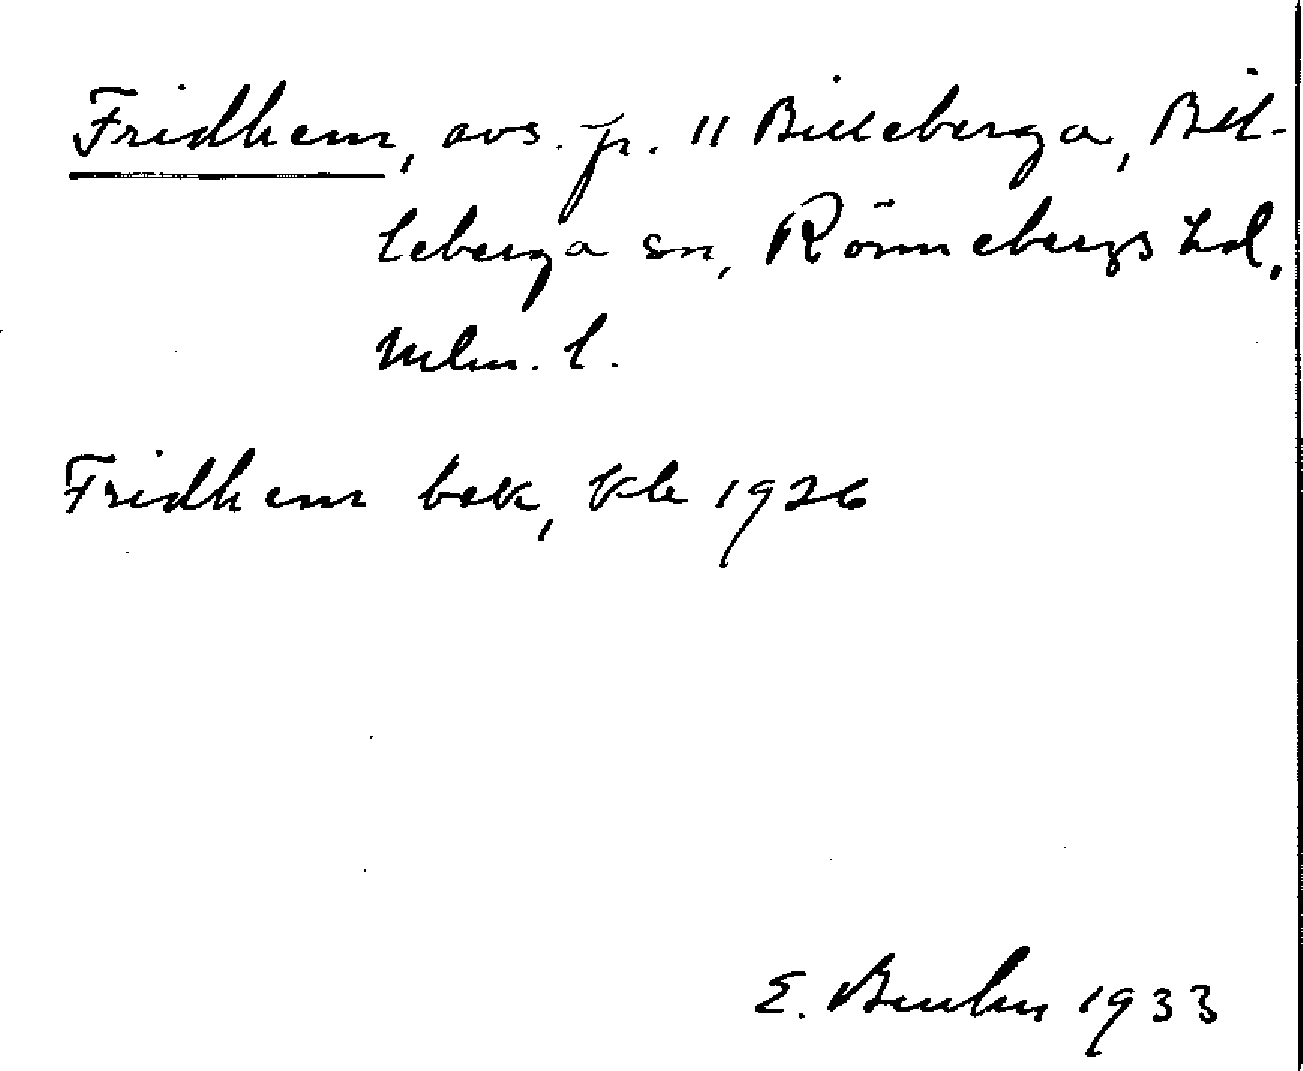 Fridhem, avs. fr. 11 Billeberga, Bil-
leberga sn, Rönnebergs hd,
Mlm. l.
Fridhem bek, kb 1926
E. 1933